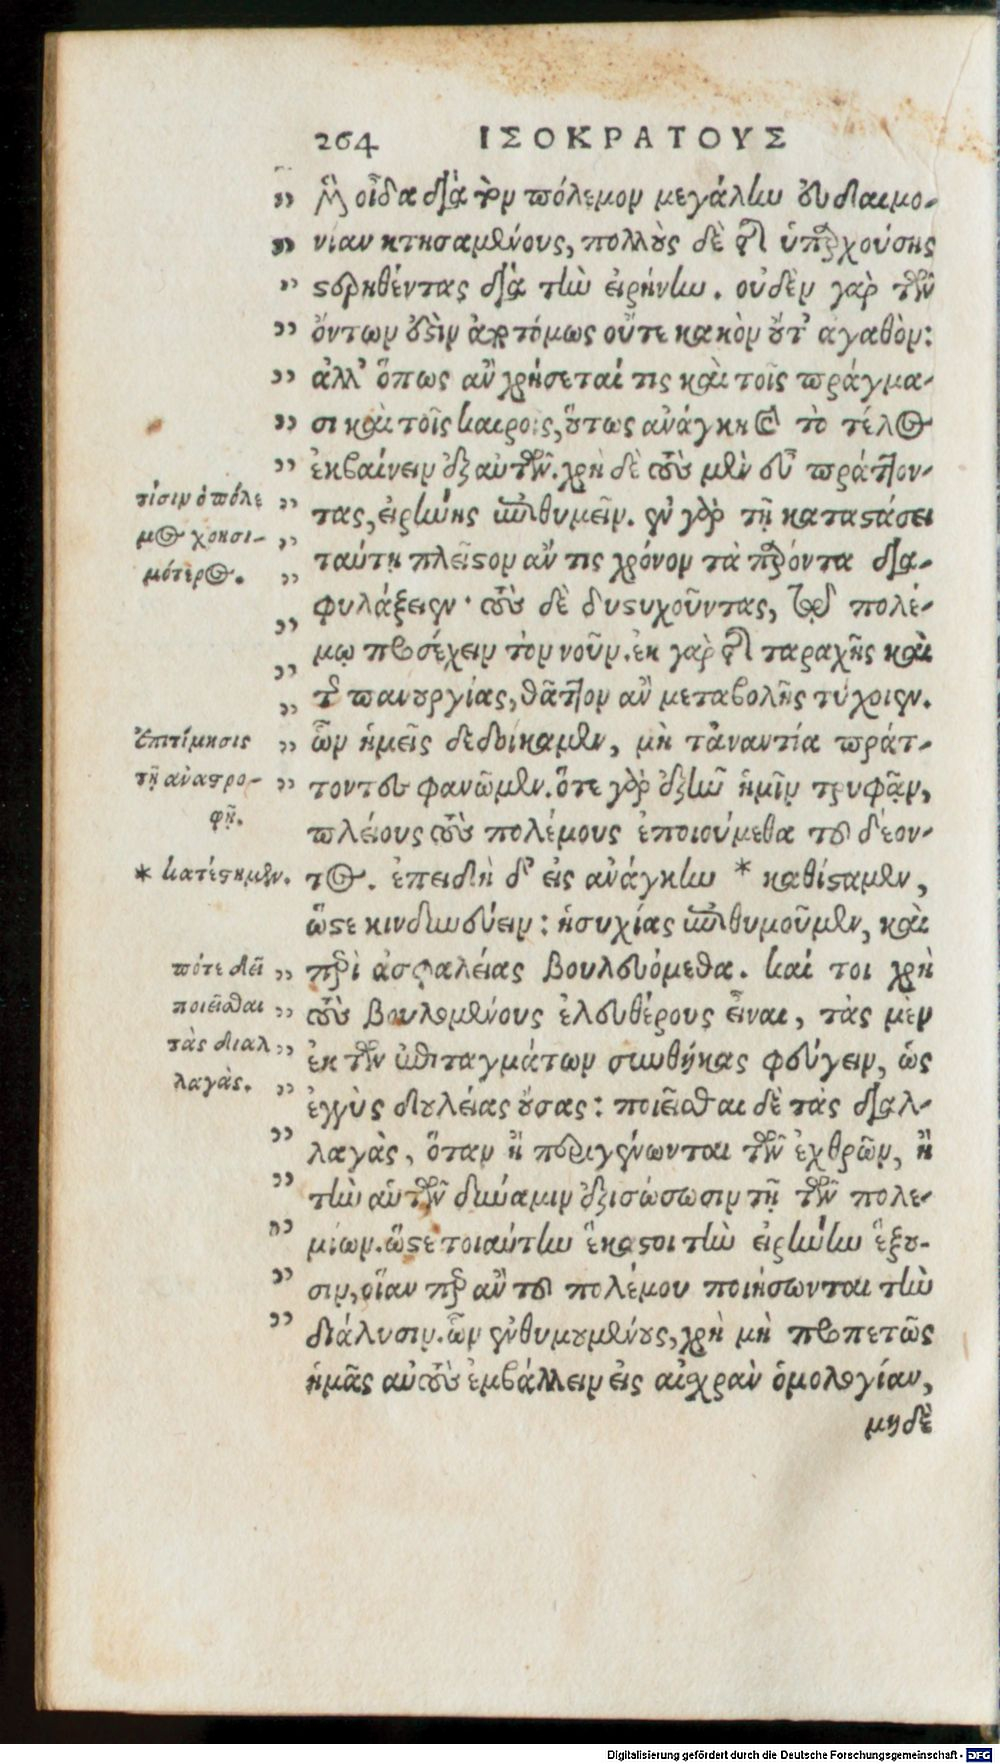 264 ΙΣΟΚΡΑΤΟΥΣ
„ μὲν οἶδα διὰ τὸν πόλεμον μεγάλην εὐδαιμο-
„ νίαν κτησαμένους, πολλοὺς δὲ τῆς ὑπαρχούσης
„ στερηθέντας διὰ τὴν εἰρήνην. οὐδὲν γὰρ τῶν
„ ὄντων ἐστὶν ἀποτόμως οὔτε κακὸν οὔτ' ἀγαθὸν:
„ ἀλλ' ὅπως ἂν χρήσεταί τις καὶ τοῖς πράγμα-
„ σι καὶ τοῖς καιροῖς, οὕτως ἀνάγκη καὶ τὸ τέλος
„ ἐκβαίνειν ἐξ αὐτῶν. χρὴ δὲ τοὺς μὲν εὖ πράττον-
τίσιν ὁ πόλε
„ τας, εἰρήνης ἐπιθυμεῖν. ἐν γὰρ τῇ καταστάσει
μος χρησι-
„ ταύτῃ πλεῖστον ἄν τις χρόνον τὰ παρόντα δια-
μότερος.
„ φυλάξειεν· τοὺς δὲ δυστυχοῦντας, τῷ πολέ-
„ μῳ προσέχειν τὸν νοῦν. ἐκ γὰρ τῆς ταραχῆς καὶ
„ τῆς πανουργίας, θᾶττον ἂν μεταβολῆς τύχοιεν.
Ἐπιτίμησις
„ ὧν ἡμεῖς δεδοίκαμεν, μὴ τἀναντία πράτ-
τῇ ἀναστρο-
„ τοντες φανῶμεν. ὅτε γὰρ ἐξῆν ἡμῖν τρυφᾷν,
φῇ.
πλείους τοὺς πολέμους ἐποιούμεθα τοῦ δέον-
* κατέστημεν.
τος. ἐπειδὴ δ' εἰς ἀνάγκην * καθίσαμεν,
ὥστε κινδυνεύειν: ἡσυχίας ἐπιθυμοῦμεν, καὶ
πότε δεῖ
„ περὶ ἀσφαλείας βουλευόμεθα. καί τοι χρὴ
ποιεῖσθαι
„ τοὺς βουλομένους ἐλευθέρους εἶναι, τὰς μὲν
τὰς διαλ
„ ἐκ τῶν ἐπιταγμάτων συνθήκας φεύγειν, ὡς
λαγάς.
„ ἐγγὺς δουλείας οὔσας: ποιεῖσθαι δὲ τὰς διαλ-
„ λαγὰς, ὅταν ἢ περιγένωνται τῶν ἐχθρῶν, ἢ
„ τὴν αὑτῶν δύναμιν ἐξισώσωσιν τῇ τῶν πολε-
„ μίων. ὥστε τοιαύτην ἕκαστοι τὴν εἰρήνην ἕξου-
„ σιν, οἵαν περ ἂν τοῦ πολέμου ποιήσωνται τὴν
„ διάλυσιν. ὧν ἐνθυμουμένους, χρὴ μὴ προπετῶς
ἡμᾶς αὐτοὺς ἐμβάλλειν εἰς αἰσχρὰν ὁμολογίαν,
μηδὲ
Digitalisierung gefördert durch die Deutsche Forschungsgemeinschaft - DFG